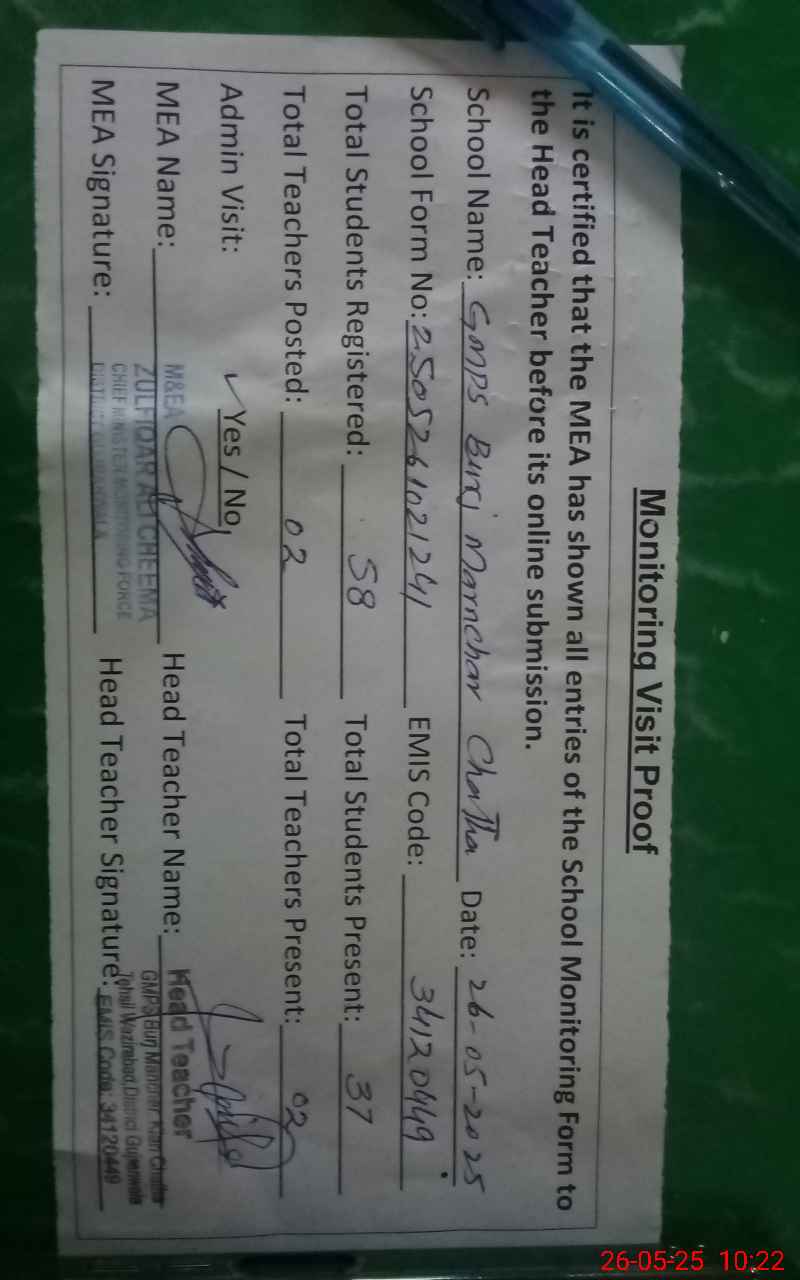 Monitoring Visit Proof
It is certified that the MEA has shown all entries of the School Monitoring Form to
the Head Teacher before its online submission.
School Name: GMPS Burj Marnchar Chatha Date: 26-05-2025
School Form No: 2505261021241 EMIS Code: 34120449
Total Students Registered: 58 Total Students Present: 37
Total Teachers Posted: 02 Total Teachers Present: 02
Admin Visit: ✓ Yes / No
MEA Name: M&EA
ZULFIQAR ALI CHEEMA
CHIEF MINISTER MONITORING FORCE
DISTRICT GUJRANWALA
MEA Signature:
Head Teacher Name: Head Teacher
GMPS Burj Chatha
Tehsil Wazirabad, District Gujranwala
EMIS Code: 34120449
Head Teacher Signature:
26-05-25 10:22